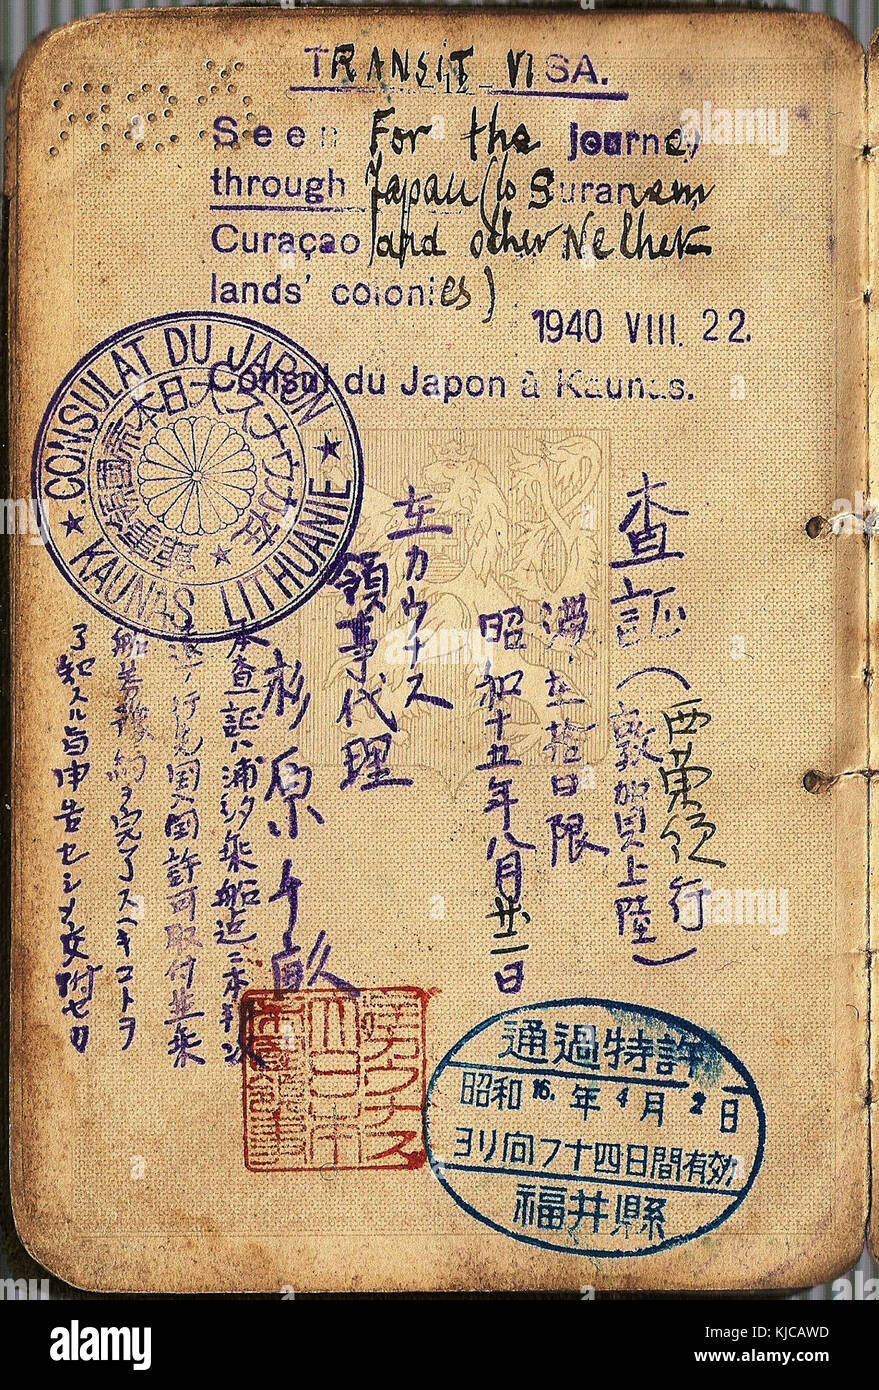 TRANSIT VISA.
Seen For the journey
through Japan (to Suranam
Curaçao and other Nether-
lands' colonies)
1940 VIII. 22.
Consul du Japon à Kaunas.
CONSULAT DU JAPON
KAUNAS LITHUANIE
在カウナス大日本帝國領事館
查証(
西東行
敦賀上陸)
滞在拾日限
昭和十五年八月廿二日
在カウナス
領事代理
杉原千畝
本査証ハ浦汐乗船迄ニ
行先国入国許可取付
約ヲ完了スヘキコトヲ
了知スル旨申告セシメ交附セリ
通過特許
昭和16.年4月2日
ヨリ向フ十四日間有効
福井縣
alamy
Image ID: KJCAWD
www.alamy.com